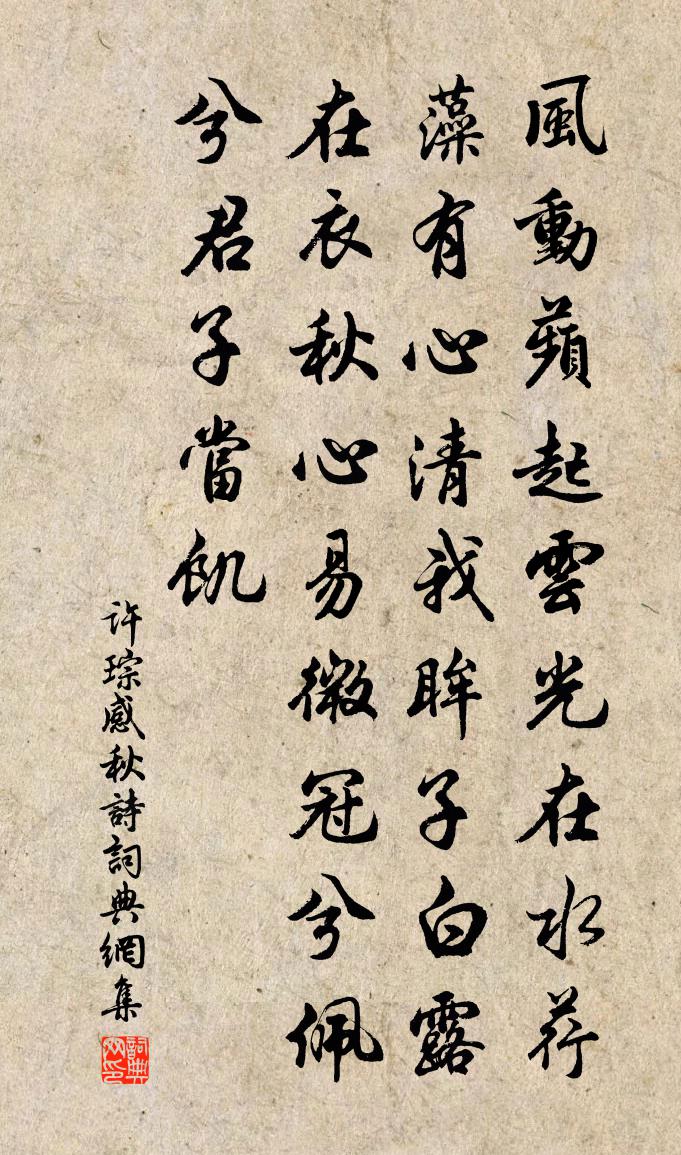 風動蘋起雲光在水荇
藻有心清我眸子白露
在衣秋心易微冠兮佩
兮君子當飢
许琮感秋詩詞典網集
詞典网印